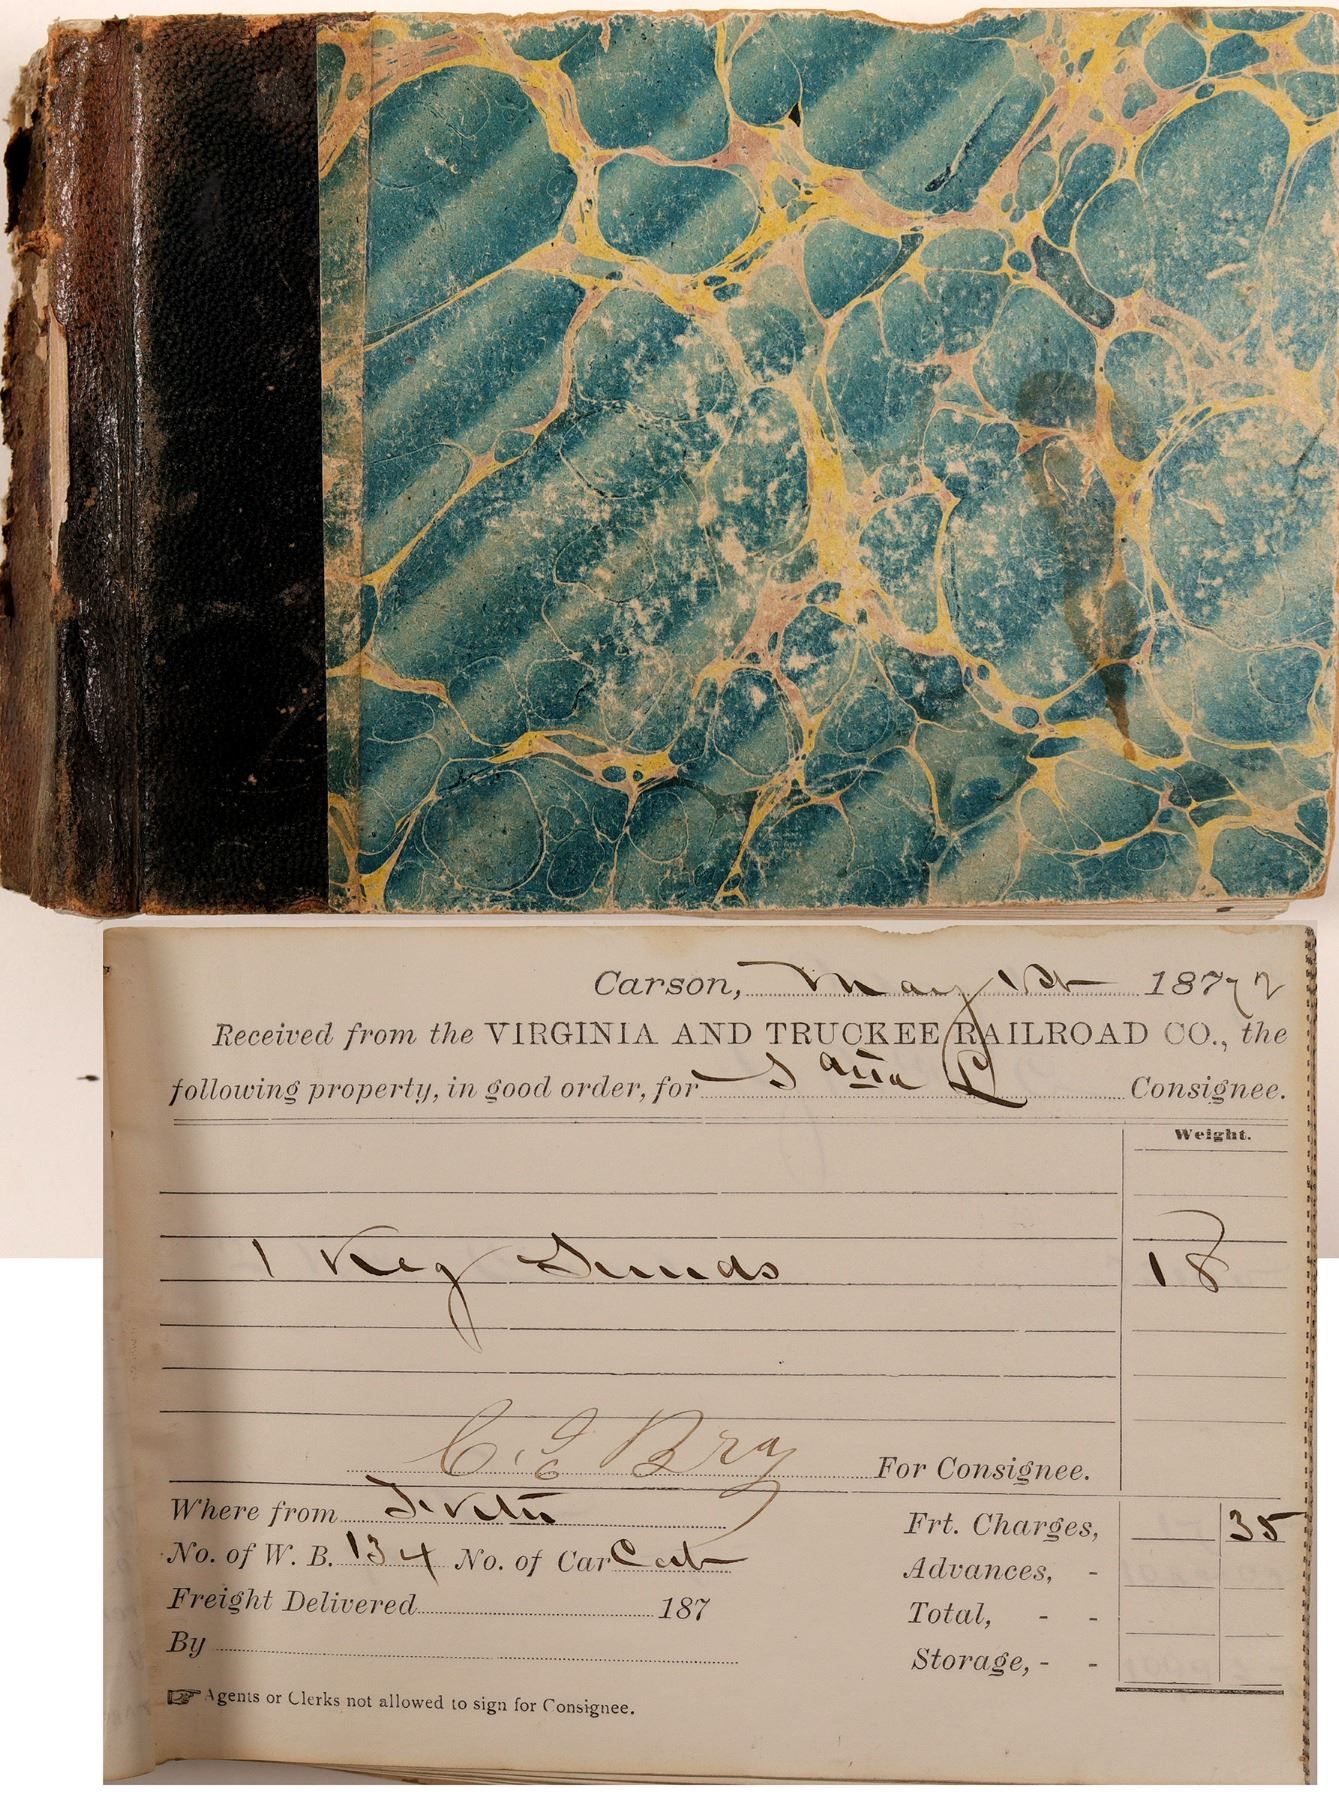 Carson, May 1st 18772
Received from the VIRGINIA AND TRUCKEE RAILROAD CO., the
following property, in good order, for Consignee.
Weight.
1 Keg 18
C. E Bray For Consignee.
Where from
Frt. Charges, 35
No. of W. B. 134 No. of Car
Advances, -
Freight Delivered 187
Total, - -
By
Storage, - -
☞ Agents or Clerks not allowed to sign for Consignee.